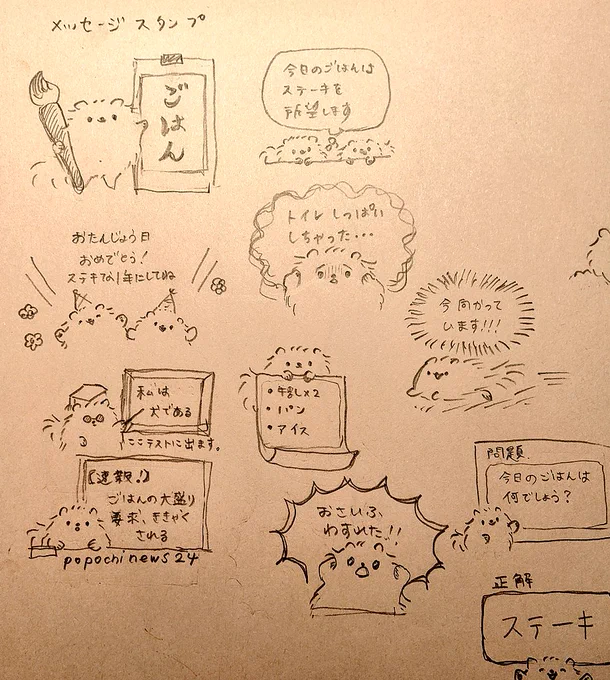 メッセージスタンプ
ごはん
今日のごはんは
ステーキを
所望します
おたんじょう日
おめでとう!
ステキな1年にしてね
トイレしっぱい
しちゃった・・・
今向かって
います!!!
私は
犬である
ここテストに出ます。
・牛乳×2
・パン
・アイス
【速報!】
ごはんの大盛り
要求、ききゃく
される
popochi news 24
おさいふ
わすれた!!
問題
今日のごはんは
何でしょう?
正解
ステーキ